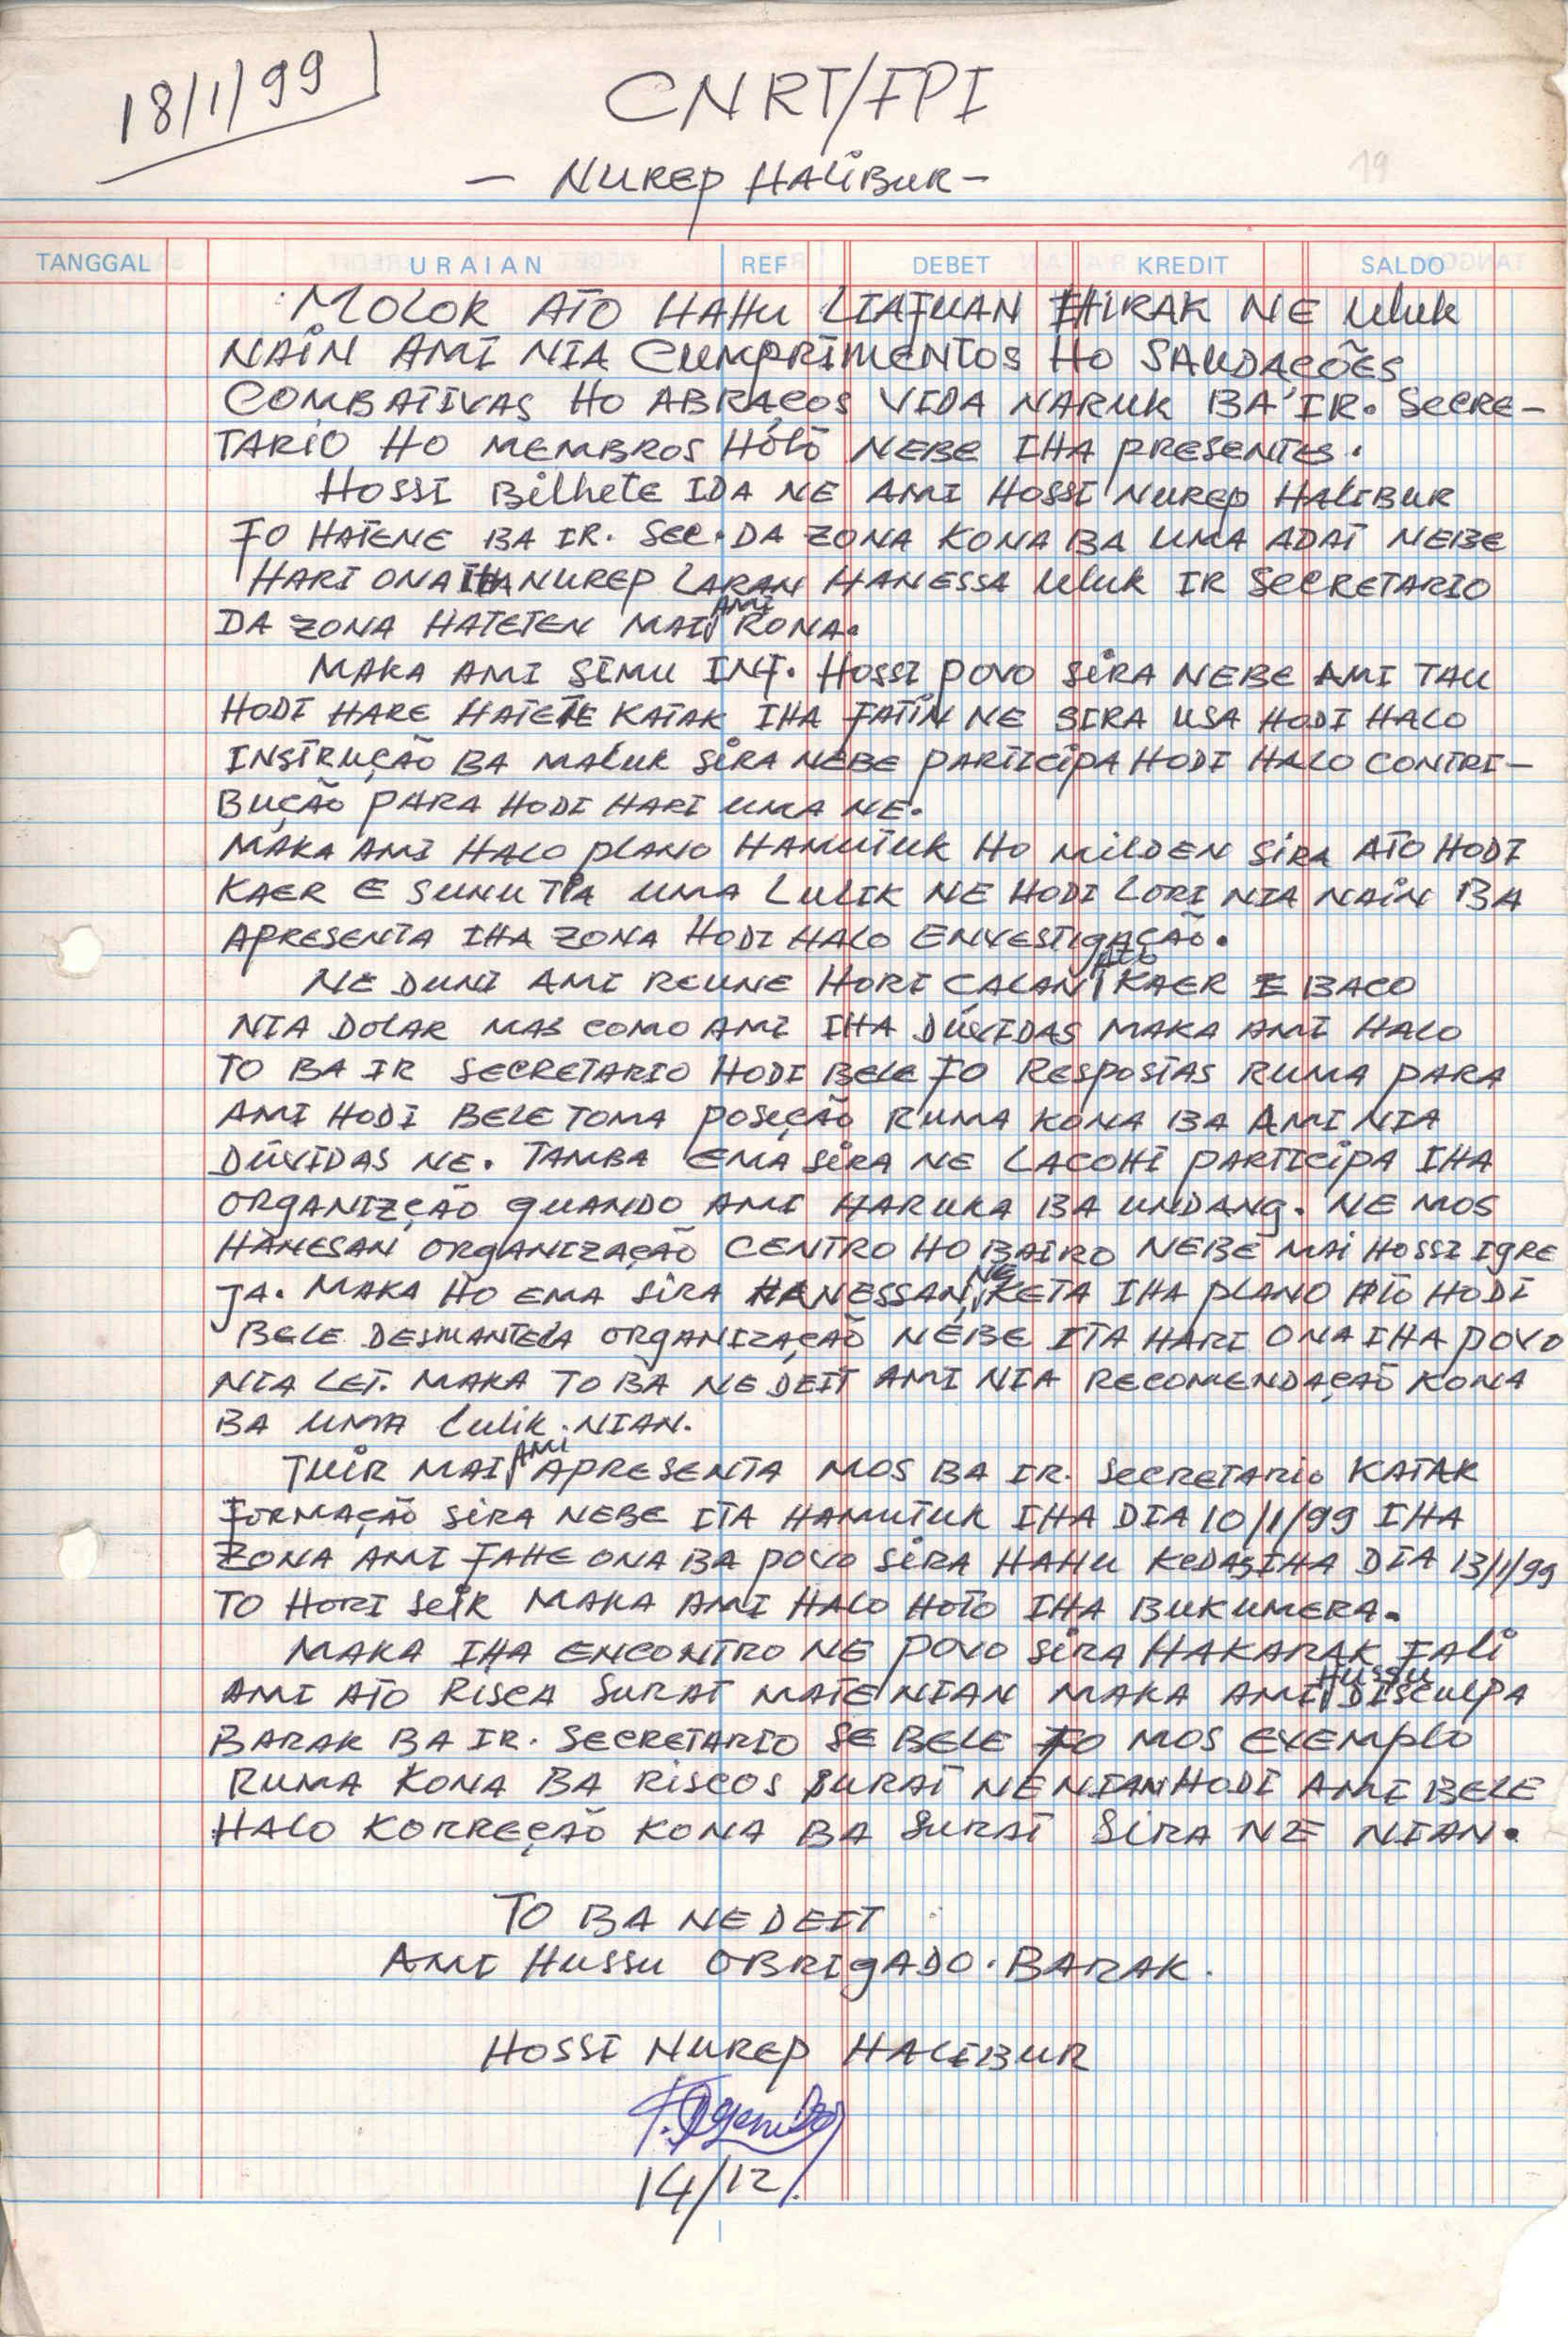 18/1/99
CNRT/FPI
- NUREP HALIBUR -
19
TANGGAL URAIAN REF DEBET KREDIT SALDO
MOLOK ATO HAHU LIAFUAN HIRAK NE Uluk
NAIN AMI NIA CUMPRIMENTOS HO SAUDAÇÕES
COMBATIVAS HO ABRAÇOS VIDA NARUK BA IR. SECRE-
TARIO HO MEMBROS HOTO NEBE IHA PRESENTES.
HOSSI Bilhete IDA NE AMI HOSSI NUREP HALIBUR
FO HATENE BA IR. Sec. DA ZONA KONA BA UMA ADAT NEBE
HARI ONA IHA NUREP LARAN HANESSA Uluk IR SECRETARIO
DA ZONA HATETEN MAI AMI RONA.
MAKA AMI SIMU INF. HOSSI POVO SIRA NEBE AMI TAU
HODI HARE HATETE KATAK IHA FATIN NE SIRA USA HODI HALO
INSTRUÇÃO BA MALUK SIRA NEBE PARTICIPA HODI HALO CONTRI-
BUÇÃO PARA HODI HARI UMA NE.
MAKA AMI HALO PLANO HAMUTUK HO MILDEN SIRA ATO HODI
KAER E SUNU TIA UMA LULIK NE HODI LORI NIA NAIN BA
APRESENTA IHA ZONA HODI HALO ENVESTIGAÇÃO.
NE DUNI AMI REUNE HORI CALAN ATO KAER E BACO
NIA DOLAR MAS COMO AMI IHA DÚVIDAS MAKA AMI HALO
TO BA IR SECRETARIO HODI BELE FO RESPOSTAS RUMA PARA
AMI HODI BELE TOMA POSEÇÃO RUMA KONA BA AMI NIA
DÚVIDAS NE. TAMBA EMA SIRA NE LACOHI PARTICIPA IHA
ORGANIZÇÃO QUANDO AMI HARUKA BA UNDANG. NE MOS
HANESAN ORGANIZAÇÃO CENTRO HO BAIRO NEBE MAI HOSSI IGRE
JA. MAKA HO EMA SIRA HANESSAN NE KETA IHA PLANO ATO HODI
BELE DESMANTELA ORGANIZAÇÃO NEBE ITA HARI ONA IHA POVO
NIA LET. MAKA TO BA NE DEIT AMI NIA RECOMENDAÇÃO KONA
BA UMA Lulik. NIAN.
TUIR MAI AMI APRESENTA MOS BA IR. SECRETARIO KATAK
FORMAÇÃO SIRA NEBE ITA HAMUTUK IHA DIA 10/1/99 IHA
ZONA AMI FAHE ONA BA POVO SIRA HAHU KEDAS IHA DIA 13/1/99
TO HORI SEIK MAKA AMI HALO HOTO IHA BUKUMERA.
MAKA IHA ENCONTRO NE POVO SIRA HAKARAK FALI
AMI ATO RISCA SURAT MATE NIAN MAKA AMI HUSSU DISCULPA
BARAK BA IR. SECRETARIO SE BELE FO MOS EXEMPLO
RUMA KONA BA RISCOS SURAT NE NIAN HODI AMI BELE
HALO KORREÇÃO KONA BA SURAT SIRA NE NIAN.
TO BA NE DEIT
AMI HUSSU OBRIGADO. BARAK.
HOSSI NUREP HALIBUR
14/12/.